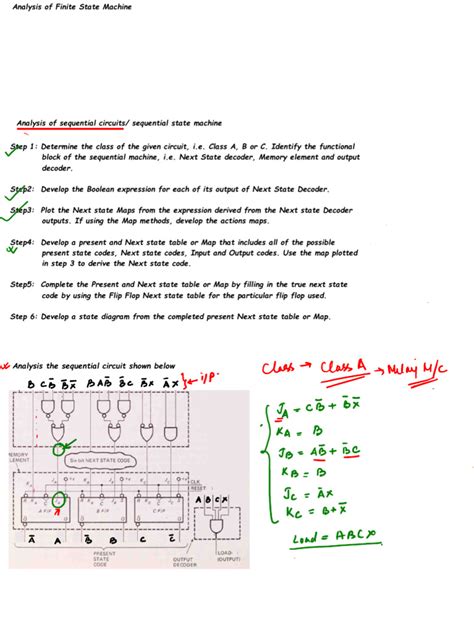 Analysis of Finite State Machine
Analysis of sequential circuits/ sequential state machine
Step 1: Determine the class of the given circuit, i.e. Class A, B or C. Identify the functional
block of the sequential machine, i.e. Next State decoder, Memory element and output
decoder.
Step2: Develop the Boolean expression for each of its output of Next State Decoder.
Step3: Plot the Next state Maps from the expression derived from the Next state Decoder
outputs. If using the Map methods, develop the actions maps.
Step4: Develop a present and Next state table or Map that includes all of the possible
present state codes, Next state codes, Input and Output codes. Use the map plotted
in step 3 to derive the Next state code.
Step5: Complete the Present and Next state table or Map by filling in the true next state
code by using the Flip Flop Next state table for the particular flip flop used.
Step 6: Develop a state diagram from the completed present Next state table or Map.
Analysis the sequential circuit shown below
Class → Class A → Melay M/c
B C B̅ B̅ X̅ B A B̅ B̅ C B̅ X A̅ X } ← i/p.
J_A = C B̅ + B̅ X̅
K_A = B
J_B = A B̅ + B̅ C
K_B = B
J_C = A̅ X
K_C = B + X̅
Load = A B C X
MEMORY
ELEMENT
Six bit NEXT STATE CODE
CLK
RESET
A B C X
A F/F
B F/F
C F/F
A̅ A B̅ B C̅ C
PRESENT
STATE
CODE
OUTPUT
DECODER
LOAD
(OUTPUT)